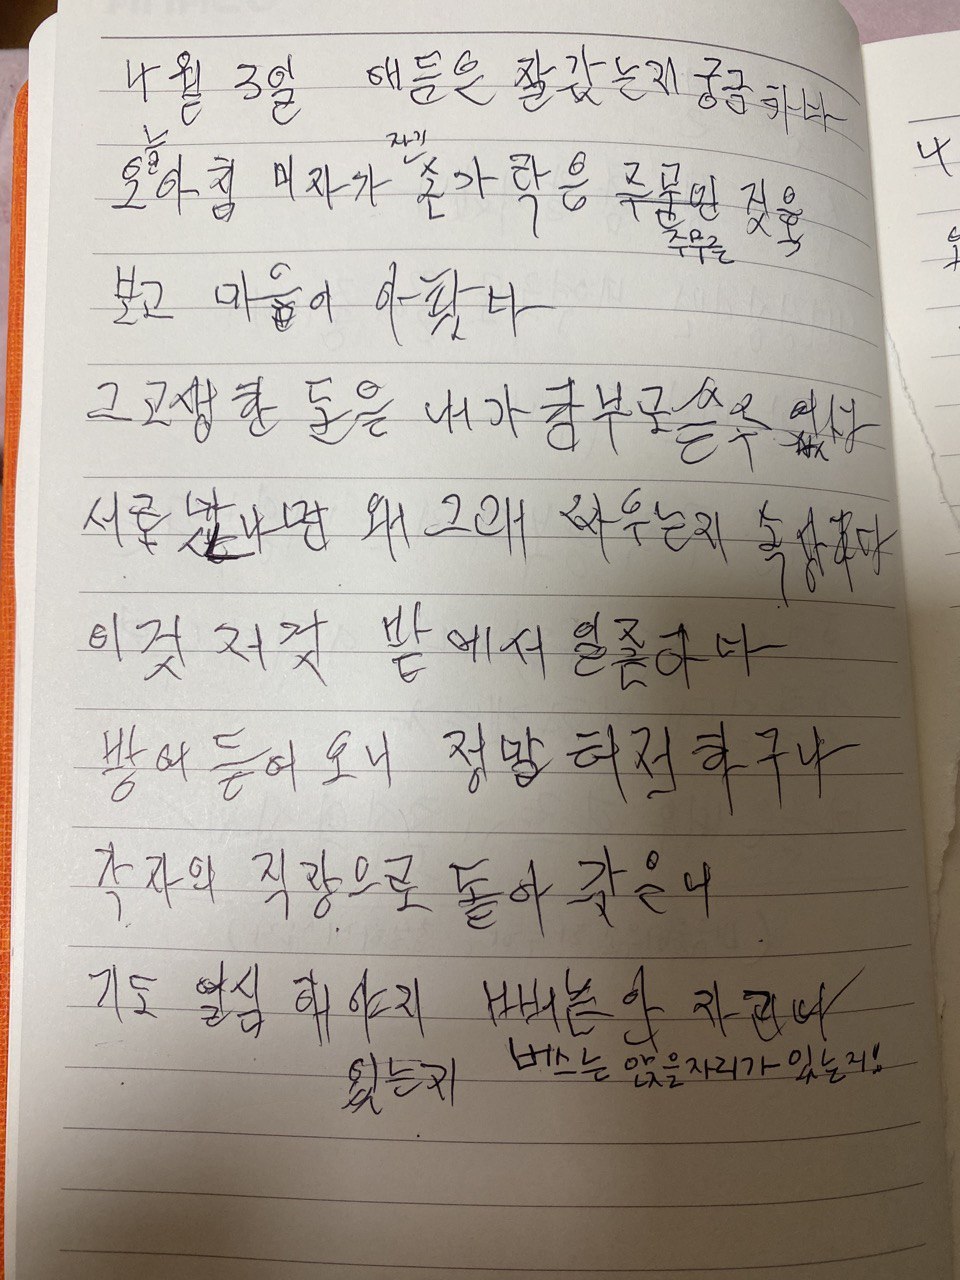 4월 3일 애듬은 잘갔는지 궁금하다
늘
자기
오아침 미자가 손가락은 주물먼 것을
주무른
보고 마음이 아팠다
그고생한 돈을 내가 함부로 쓸수 없서
서로 만나면 왜 그래 싸우는지 속상하다
이것 저것 밭에서 일좀하다
방에 들어오니 정말 허전하구나
각자의 직장으로 돌아 갖을니
기도 열심 해야지 뻐스는 안 자리나
있는지
버스는 앉을자리가 있는지!